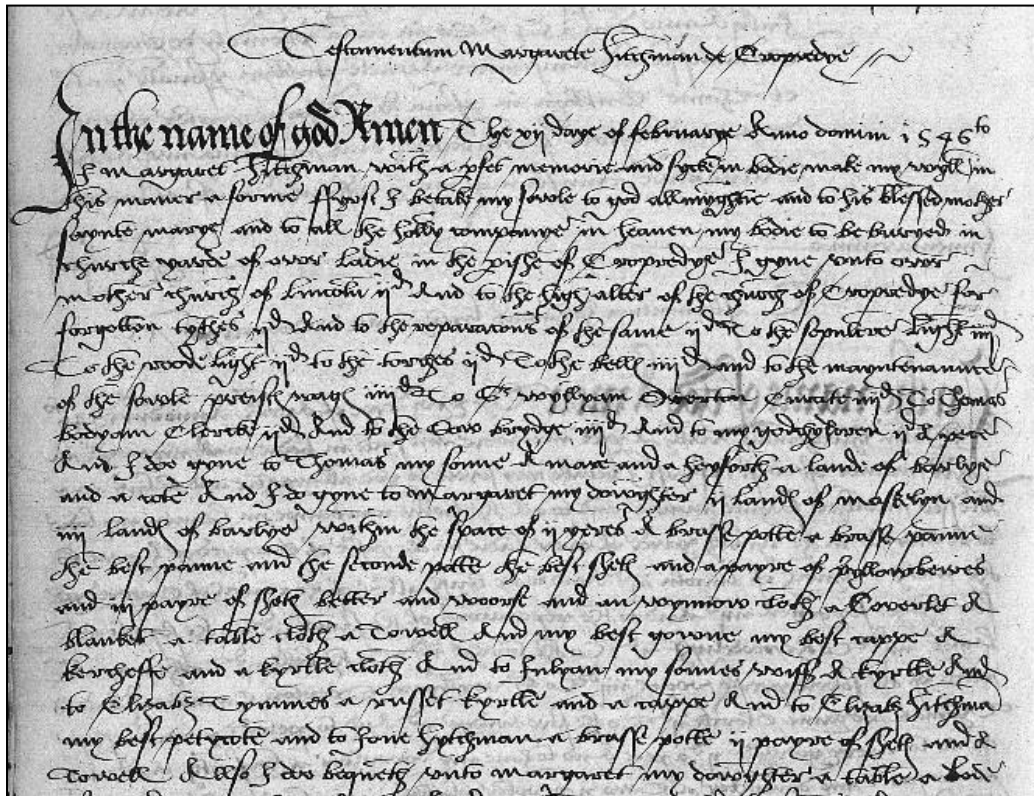 Testamentum Margarete Hitchman de Cropredye
In the name of god Amen The xij daye of februarye Anno domini 1546to
I Margaret Hitchman with a pfet memorie and sycke in bodie make my wyll in
this maner a forme ffyrst I betake my sowle to god allmyghtie and to his blessed mother
saynte marye and to all the holly companye in heaven my bodie to be buryed in
churche yarde of owr ladie in the pishe of Cropredye I gyve unto owr
mother church of Lincoln ijd And to the high alter of the church of Cropredye for
forgotten tythes ijd And to the reparacons of the same ijd To the sepulcre light iiijd
To the roode light ijd to the torches ijd To the bells iiijd and to the mayntenannce
of the sowle preists wags iiijd To Sr wyllyam Curate iiijd To Thomas
bodyam Clercke ijd And to the brydge iiijd And to my godchyldren ijd A pece
And I doe gyve to Thomas my sonne A mare and a heyforth a lande of barlye
and a cote And I do gyve to Margaret my dowghter ij lands of mascelyn and
iiij lands of barlye within the space of ij yeres A brasse potte a brasse panne
the best panne and the seconde potte the best shets and a payre of pyllowberes
and iij payre of shets better and woorse and an wynnow cloth a Coverlet A
blanket a table cloth a Towell And my best gowne my best cappe A
kercheffe and a kyrtle cloth And to Julyan my sonnes wiffe A kyrtle And
to Elizabz Tymmes a russet kyrtle and a cappe And to Elizabz Hitchma
my best petycote and to Jone Hytchman a brasse potte ij payre of shets and A
Towell Allso I doe bequeth unto Margaret my dowghter a table a